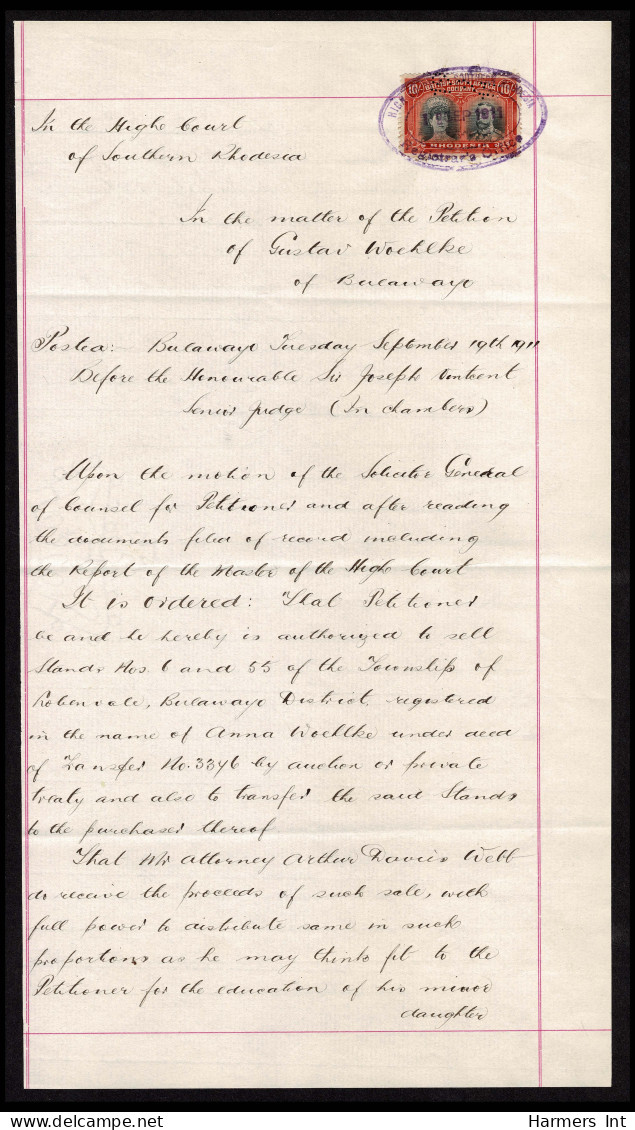 HIGH
BRITISH SOUTH AFRICA
COMPANY
10/ 10/
SEP 1911
RHODESIA
Registrar's Office
In the High Court
of Southern Rhodesia
In the matter of the Petition
of Gustav Woehlke
of Bulawayo
Postea: Bulawayo Tuesday September 19th 1911
Before the Honourable Sir Joseph Vintcent
Senior Judge (In chambers)
Upon the motion of the Solicitor General
of Counsel for Petitioner and after reading
the documents filed of record including
the Report of the Master of the High Court
It is Ordered: That Petitioner
be and he hereby is authorized to sell
Stands Nos. 6 and 55 of the Township of
Lobenvale, Bulawayo District, registered
in the name of Anna Woehlke under deed
of Transfer No. 3346 by auction or private
treaty and also to transfer the said Stands
to the purchaser thereof
That Mr Attorney Arthur Davies Webb
do receive the proceeds of such sale, with
full power to distribute same in such
proportions as he may think fit to the
Petitioner for the education of his minor
daughter
Harmers Int